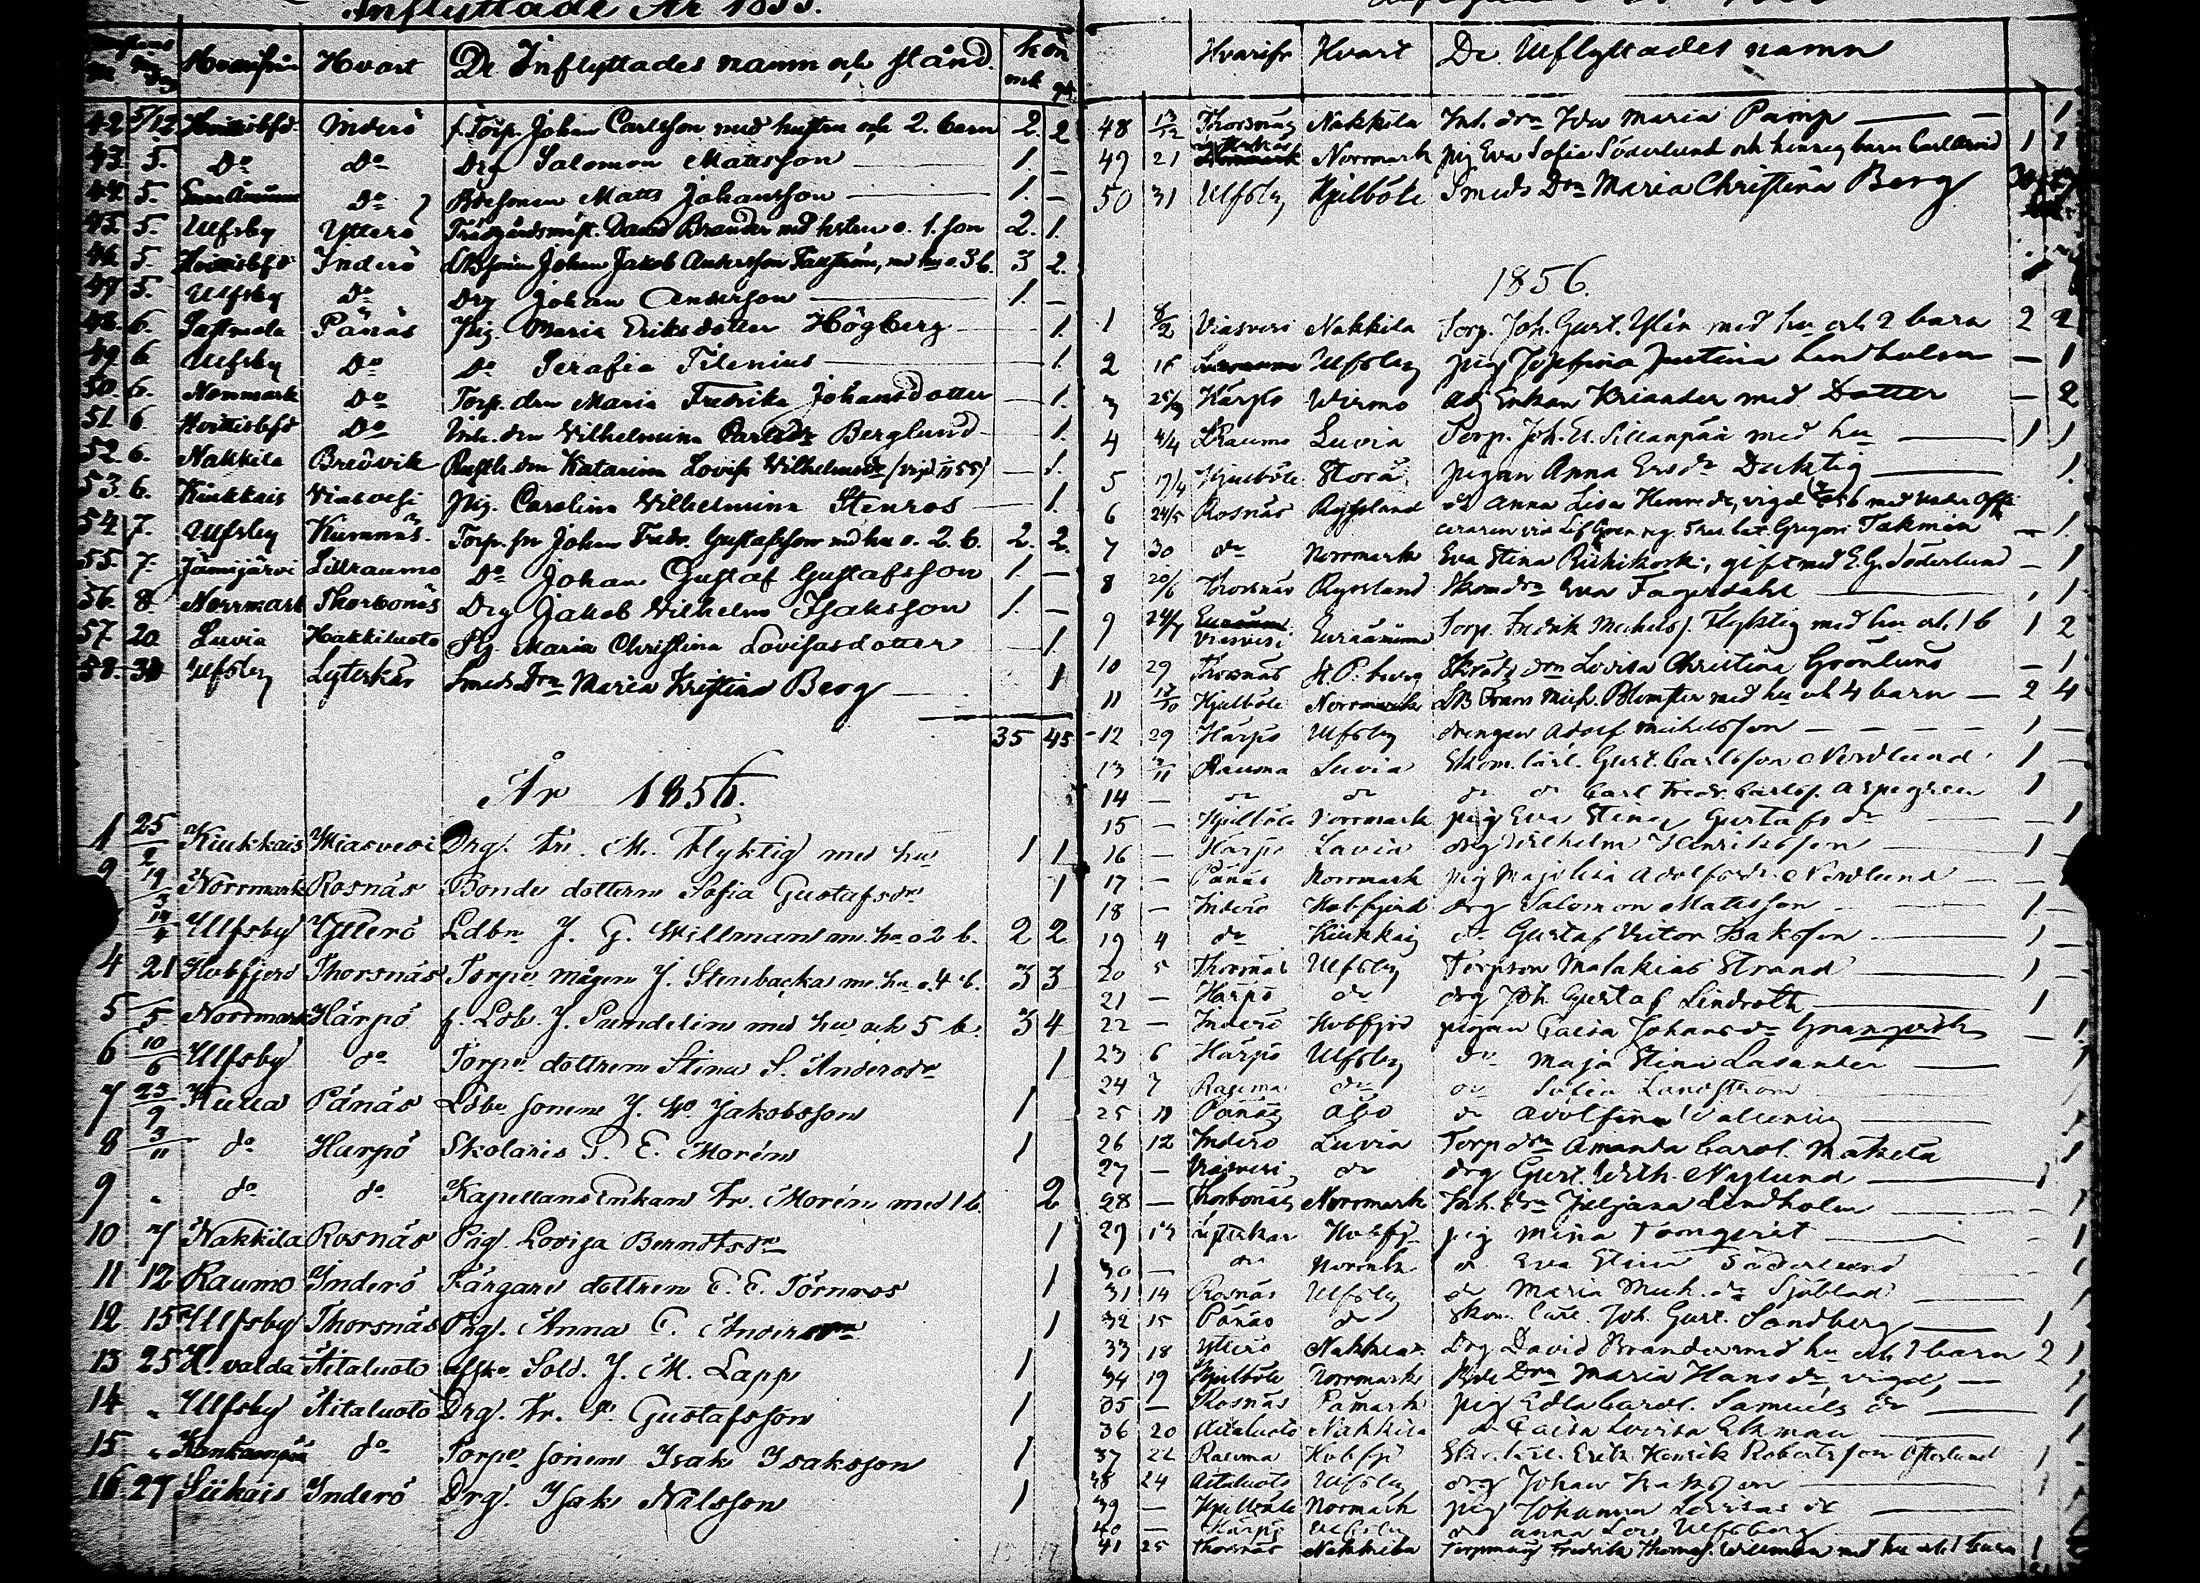 Inflyttade År 1855.
Hvarifrån Hvart De Inflyttades namn och stånd. Kön
mk qk
42 5/12 Hvittisbfd Inderö f. Torp. Johan Carlsson med hustru och 2. barn 2. 2
43. 5. Do do Drg Salomon Matsson 1. –
44. 5. Do Bdesonen Matts Johansson 1. –
45. 5. Ulfsby Ytterö Trädgårdsmäst. David Brander med hustru o. 1. son 2. 1.
46. 5 Hvittisbfd Inderö Johan Jakob Andersson med hu o. 3 b. 3 2.
47 5. Ulfsby do Drg Johan Andersson 1. –
48. 6. Pånäs Pig. Maria Eriksdotter Högberg – 1.
49 6 Ulfsby Do Do Serafia Filenius 1.
50. 6. Norrmark Do Torp. dra Maria Fredrika Johansdotter – 1.
51 6 Hvittisbfd Do Inh. dra Vilhelmina Berglund 1.
52 6. Nakkila Bredvik Katarina Lovisa Vilhelmsdr – 1.
53. 6. Kiukkais Viasvesi Pig. Carolina Vilhelmina Stenros 1.
54 7. Ulfsby Kumnäs. Torp. sn Johan Fredr. Gustafsson md hu o. 2. b. 2. 2.
55. 7. Jämijärvi Lillraumo Do Johan Gustaf Gustafsson 1. –
56. 8 Norrmark Thorbonäs Drg Jakob Vilhelm Isaksson 1. –
57. 20 Luvia Hakkiluoto Pig Maria Christina Lovisasdotter 1
58. 31 Ulfsby Lyterkär Smeds Dra Maria Kristina Berg 1
35 45
År 1856.
1 25/2 Kiukkais Wiasvesi Drg. Fr. M. Flyktig med hu 1 1
2 19/3 Norrmark Rosnäs Bonde dottern Sofia Gustafsdr 1
14/4 Ulfsby Ytterö Ldbn J. G. Willman m. hu o 2 b. 2 2
4 21 Hvbfjerd Thorsnäs Torpe mågen J. Stenbacka m. hu o. 4 b. 3 3
5 5 Norrmark Härpö f. Ldb. J. Sundelin med hu och 5 b. 3 4
6 10/6 Ulfsby do Torpe dottren Stina S. Andersdr 1
7 23/9 Kulla Pånäs Ldbe sonen J. W. Jakobsson 1
8 3/11 do Harpö Skolaris P. E. Morén 1
9 " do do Kapellans Enkan Fr. Morén med 1 b. 2
10 7 Nakkila Rosnäs Pig. Lovisa Berndtsdr 1
11 12 Raumo Inderö Färgare dottren E. E. Törnroos 1
12 15 Ulfsby Thorsnäs Pig. Anna C. Andersdr 1
13 25 Aitaluoto afske. Sold. J. M. Lapp 1
14 " Ulfsby Aitaluoto Drg. Fr. W. Gustafsson 1
15 " Kankaanpää do Torpe sonen Isak Isaksson 1
16 27 Siikais Inderö Drg. Isak Nilsson 1
Hvarifr Hvart De Utflyttades namn
48 13/12 Thorsnäs Nakkila Inh. dra Ida Maria Pamp – 1
49 21 Norrmark pig Eva Sofia Söderlund och hennes barn Carl 1 1
50 31 Ulfsby Kjilböle Smeds Dra Maria Christina Berg
1856.
1 8/2 Viasvesi Nakkila Torp. Joh. Gust. Ylén med hu och 2 barn 2 2
2 16 Ulfsby pig Josefina Justina Lindholm – 1
3 25/3 Härpö Wirmo Enkan Kriander med Dotter – 2
4 4/4 LRaumo Luvia Torp. Joh. E. Sillanpää med hu 1 1
5 17/4 Kjulböle Storå pigan Anna Ersdr Ducktig 1.
6 24/5 Rosnäs Ryssland do Anna Lisa Henrsdr, vigd med Under Offi
ceraren vid Gregori Takmin – 1.
7 30 do Norrmark Eva Stina Riihikoski, gift med E. G. Söderlund – 1
8 20/6 Thorsnäs Ryssland Skomdra Eva Fagerdahl 1
9 24/7 Viasvesi Euraåminne Torp. Fredrik Michelss. Flyktig med hu och 1 b 1 2
10 29 Thorsnäs St. P. burg Skrädd dra Lovisa Christina Grönlund – 1
11 13/10 Kjulböle Norrmark LB Frans Mich. Blomster med hu och 4 barn – 2 4
12 29 Härpö Ulfsby drengen Adolf Michelsson – 1 –
13 3/11 Rauma Luvia Skom. lärl. Gust. Carlsson Nordlund 1 –
14 – do do do do Carl Fredr. Carlss. Aspegren 1
15 – Kjulböle Norrmark pig Eva Stina Gustafsdr 1
16 – Härpö Luvia drg Wilhelm Henriksson 1
17 – Pånäs Norrmark pig Maja Lisa Adolfsdr Nordlund –
18 – Inderö Hvbfjerd drg Salomon Matsson 1 –
19 4 do Kiukkais do Gustaf Victor Isaksson 1
20 5 Thorsnäs Ulfsby Torpson Malakias Strand 1 –
21 – Härpö do drg Joh. Gustaf Lindroth 1
22 – Inderö Hvbfjrd pigan Caisa Johansdr Granqvist – 1
23 6 Härpö Ulfsby do Maja Stina Lasander 1
24 7 Rauma do do Sofia Landström
25 11 Pånäs Åbo do Adolfina Valenius
26 12 Inderö Luvia Torp dra Amanda Carol. Mäkelä 1
27 – Viasvesi do drg Gust. Wilh. Nylund 1
28 – Thorbonäs Norrmark Inh. dra Juljana Lindholm 1
29 13 Hvbfj. pig Mina Tornqvist
30 – do Norrmk do Eva Stina Söderlund
31 14 Rosnäs Ulfsby do Maria Mich. dr Sjöblad
32 15 Pånäs do Skom. lärl. Joh. Gust. Sandberg 1
33 18 Ytterö Nakkila Drg David Brander med hu och 1 barn 2 1
34 19 Kjulböle Norrmark Bde Dra Maria Hansdr vigd, – 1
35 – Rosnäs Påmark pig Edla Carol. Samuels dr 1
36 20 Aitaluoto Nakkila do Caisa Lovisa Ekman 1
37 22 Rauma Hvbfjd Skr. lärl. Erik Henrik Robertsson Österlund 1
38 24 Aitaluoto Ulfsby drg Johan Isaksson 1
39 – Kjulböle Norrmark pig Johanna Lovisas dr
40 – Härpö Ulfsby do Anna Lovis Ulfsberg
41 25 Thorsnäs Nakkila Torpmåg Fredrik Thomass. Willman med hu och 1 barn 1